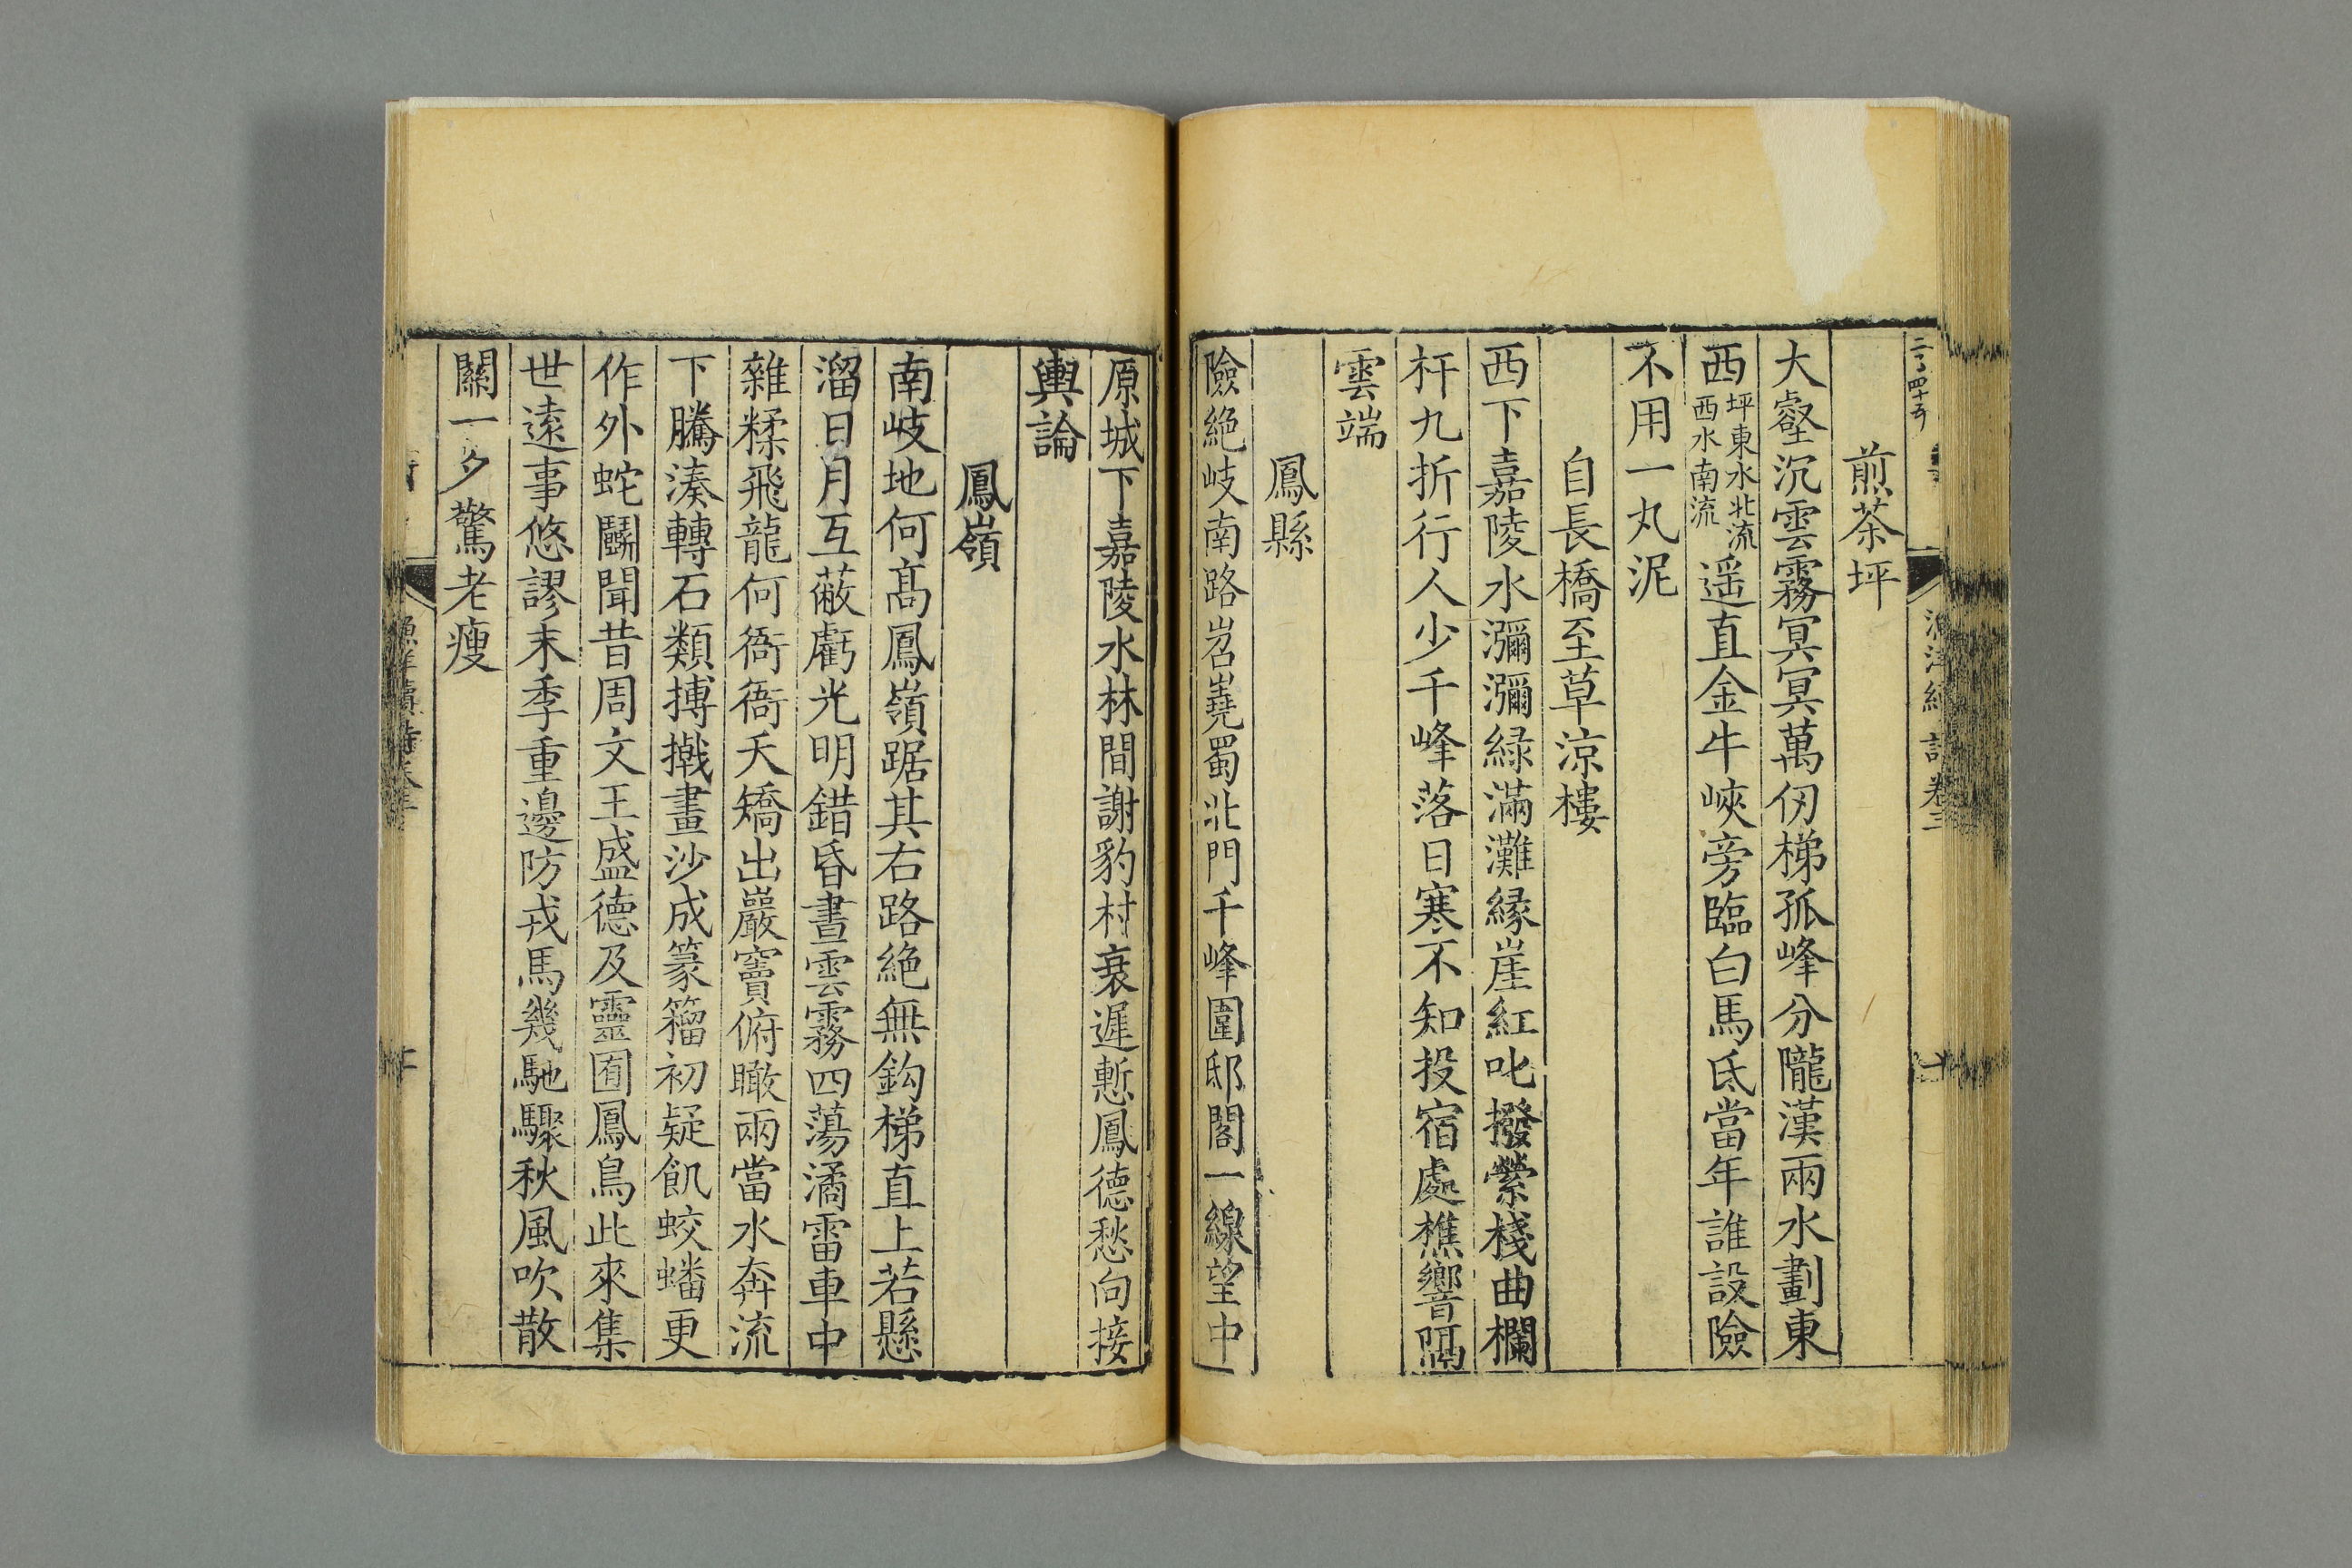 煎茶坪
大壑沉雲霧冥冥萬仞梯孤峰分隴漢兩水劃東
西坪東水北流西水南流遥直金牛峽旁臨白馬氐當年誰設險
不用一丸泥
自長橋至草涼樓
西下嘉陵水瀰瀰緑滿灘縁崖紅叱撥縈棧曲欄
杆九折行人少千峰落日寒不知投宿處樵響隔
雲端
鳳縣
險絶岐南路岧嶤蜀北門千峰圍邸閣一線望中
原城下嘉陵水林間謝豹村衰遲慙鳳德愁向接
輿論
鳳嶺
南岐地何髙鳳嶺踞其右路絶無鈎梯直上若懸
溜日月互蔽虧光明錯昏晝雲霧四蕩潏雷車中
雜糅飛龍何衙衙夭矯出巖竇俯瞰兩當水奔流
下騰湊轉石類搏擑畫沙成篆籀初疑飢蛟蟠更
作外蛇鬭聞昔周文王盛德及靈囿鳳鳥此來集
世遠事悠謬末季重邊防戎馬幾馳驟秋風吹散
關一夕驚老瘦